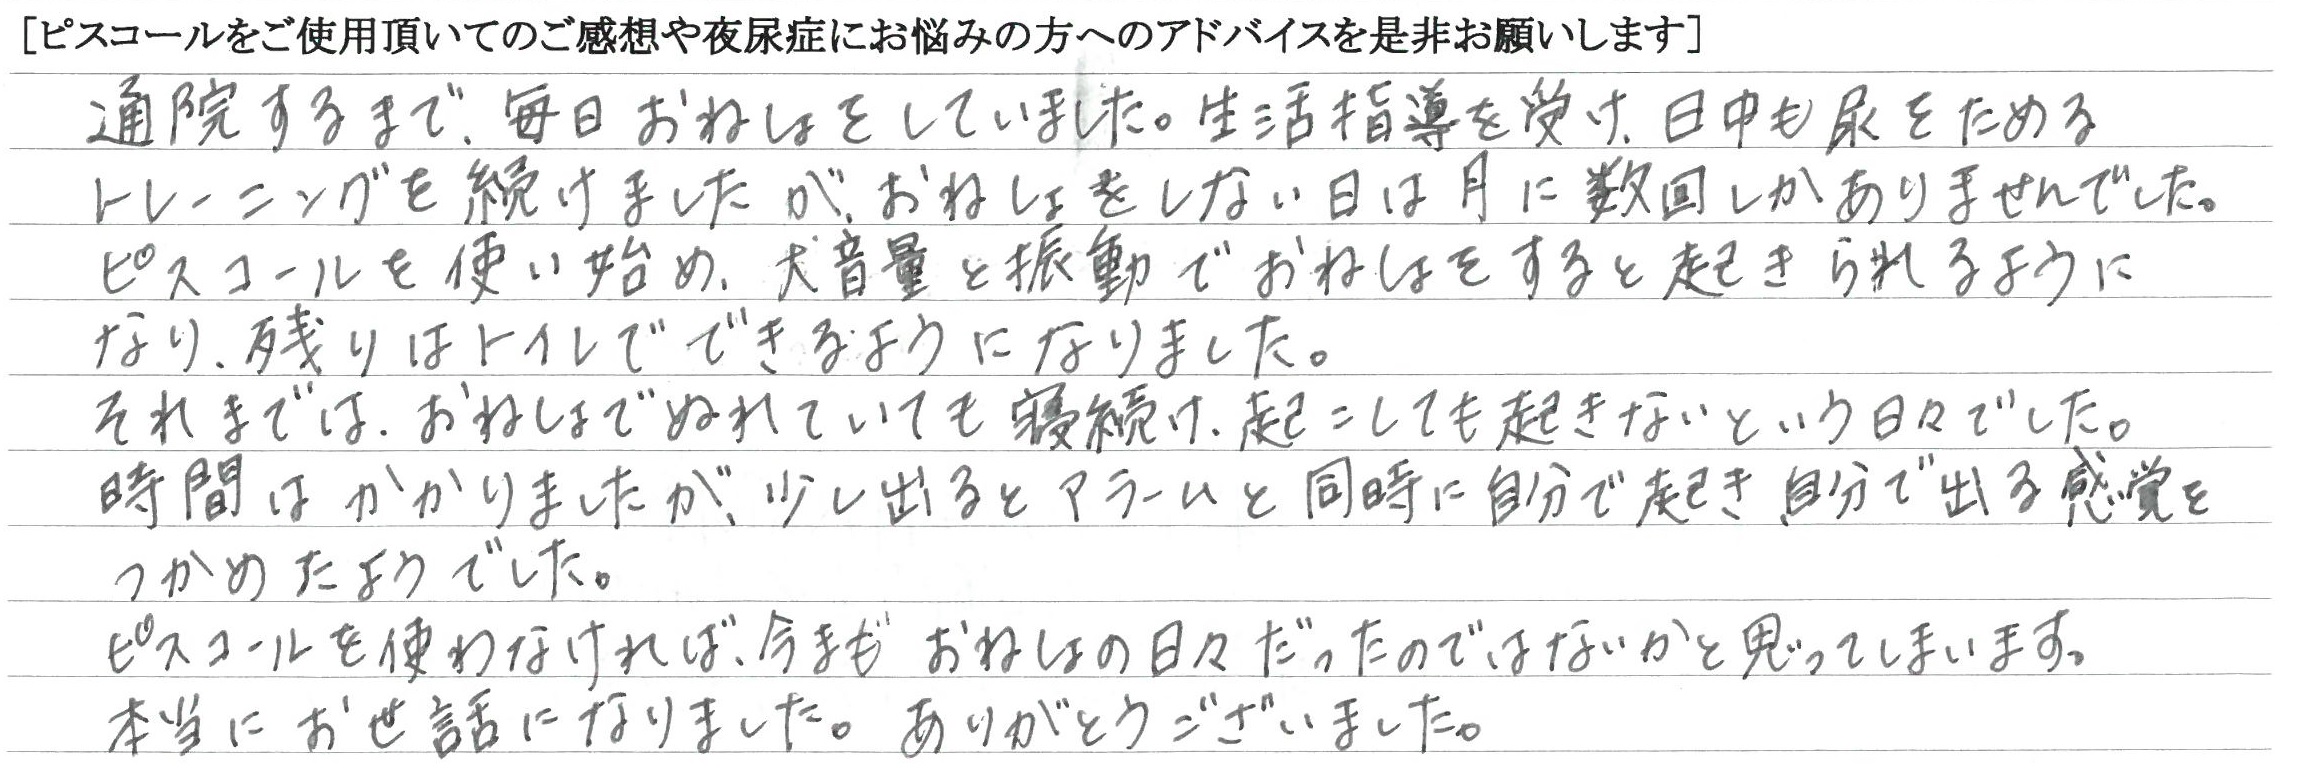 [ピスコールをご使用頂いてのご感想や夜尿症にお悩みの方へのアドバイスを是非お願いします]
通院するまで、毎日おねしょをしていました。生活指導を受け、日中も尿をためる
トレーニングを続けましたが、おねしょをしない日は月に数回しかありませんでした。
ピスコールを使い始め、大音量と振動でおねしょをすると起きられるように
なり、残りはトイレでできるようになりました。
それまでは、おねしょでぬれていても寝続け、起こしても起きないという日々でした。
時間はかかりましたが、少し出るとアラームと同時に自分で起き、自分で出る感覚を
つかめたようでした。
ピスコールを使わなければ、今までもおねしょの日々だったのではないかと思ってしまいます。
本当にお世話になりました。ありがとうございました。